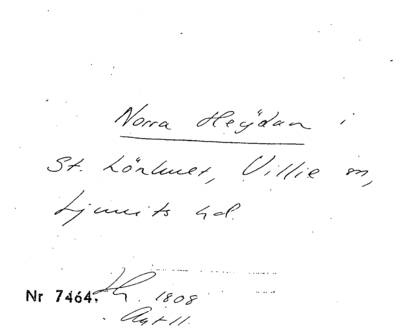 Norra Heÿdan i
St. Lönhult, Villie sn,
Ljunits hd.
Nr 7464. 1808
Akt 11.